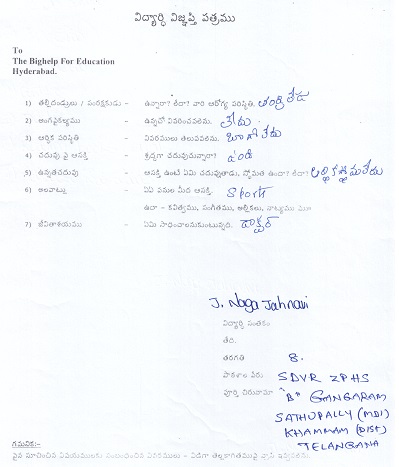 విద్యార్థి విజ్ఞప్తి పత్రము
To
The Bighelp For Education
Hyderabad.
1) తల్లిదండ్రులు / సంరక్షకుడు - ఉన్నారా? లేదా? వారి ఆరోగ్య పరిస్థితి. తండ్రి లేడు
2) అంగవైకల్యము - ఉన్నచో వివరించవలెను. లేదు
3) ఆర్థిక పరిస్థితి - వివరములు తెలుపవలెను. బాగా లేదు
4) చదువు పై ఆసక్తి - శ్రద్ధగా చదువుచున్నారా?
5) ఉన్నతచదువు - ఆసక్తి ఉంటే ఏమి చదువుతాడు, స్తోమత ఉందా? లేదా?
6) అలవాట్లు - ఏఏ పనుల మీద ఆసక్తి. Sports
ఉదా - కవిత్వము, సంగీతము, అల్లికలు, నాట్యము
7) జీవితాశయము - ఏమి సాధించాలనుకుంటున్నది. డాక్టర్
J. Naga Jahnavi
విద్యార్థి సంతకం
తేది.
తరగతి 8.
పాఠశాల పేరు SDVR ZPHS
పూర్తి చిరునామా "B" GANGARAM
SATHUPALLY (MDl)
KHAMMAM (DIST)
TELANGANA
గమనిక:-
పైన సూచించిన విషయములకు సంబంధించిన వివరములు - విడిగా తెల్లకాగితముపై వ్రాసి